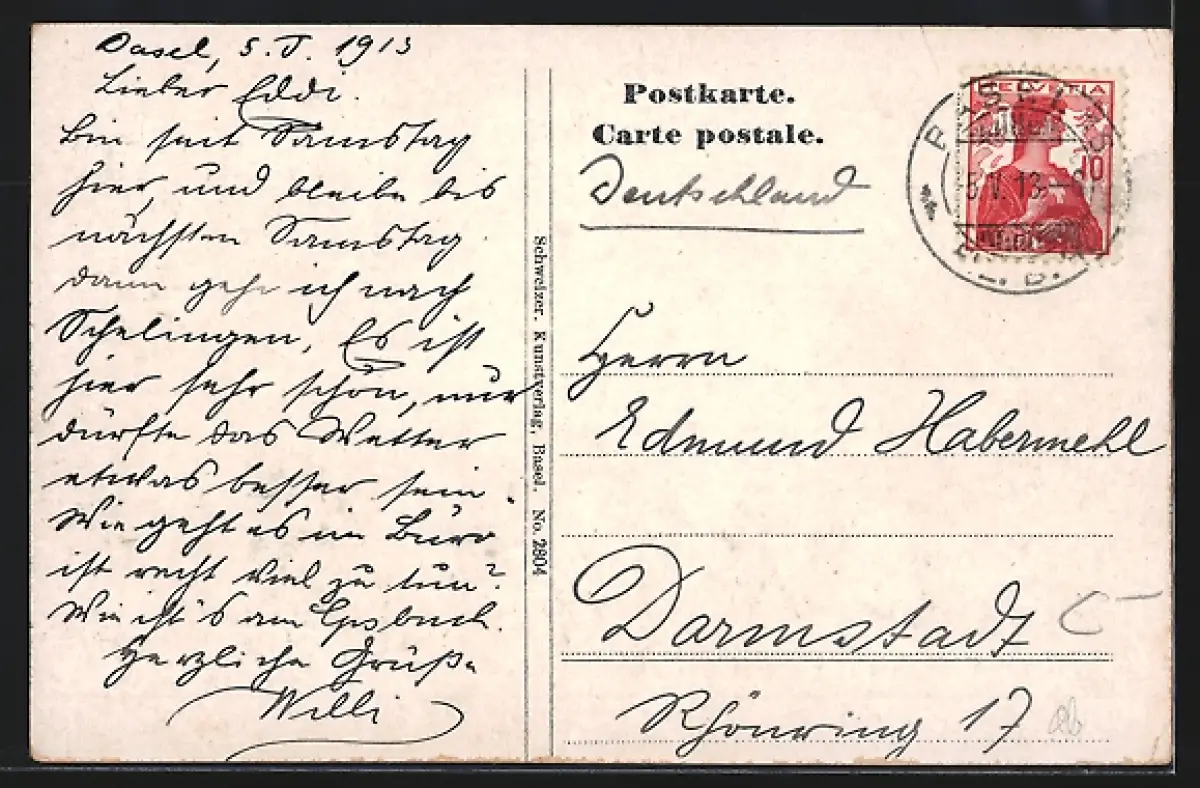 Basel, 5. V. 1913
Lieber Eddi.
Bin seit Samstag
hier, und bleibe bis
nächsten Samstag
dann gehe ich nach
Schelingen, Es ist
hier sehr schön, nur
dürfte das Wetter
etwas besser sein.
Wie geht es im Büro
ist recht viel zu tun?
Wie ist's am
Herzliche Grüße
Willi
Schweizer. Kunstverlag, Basel. No. 2804
Postkarte.
Carte postale.
Deutschland
HELVETIA
10
5.V.13.
Herrn
Edmund Habermehl
Darmstadt
Rhönring 17